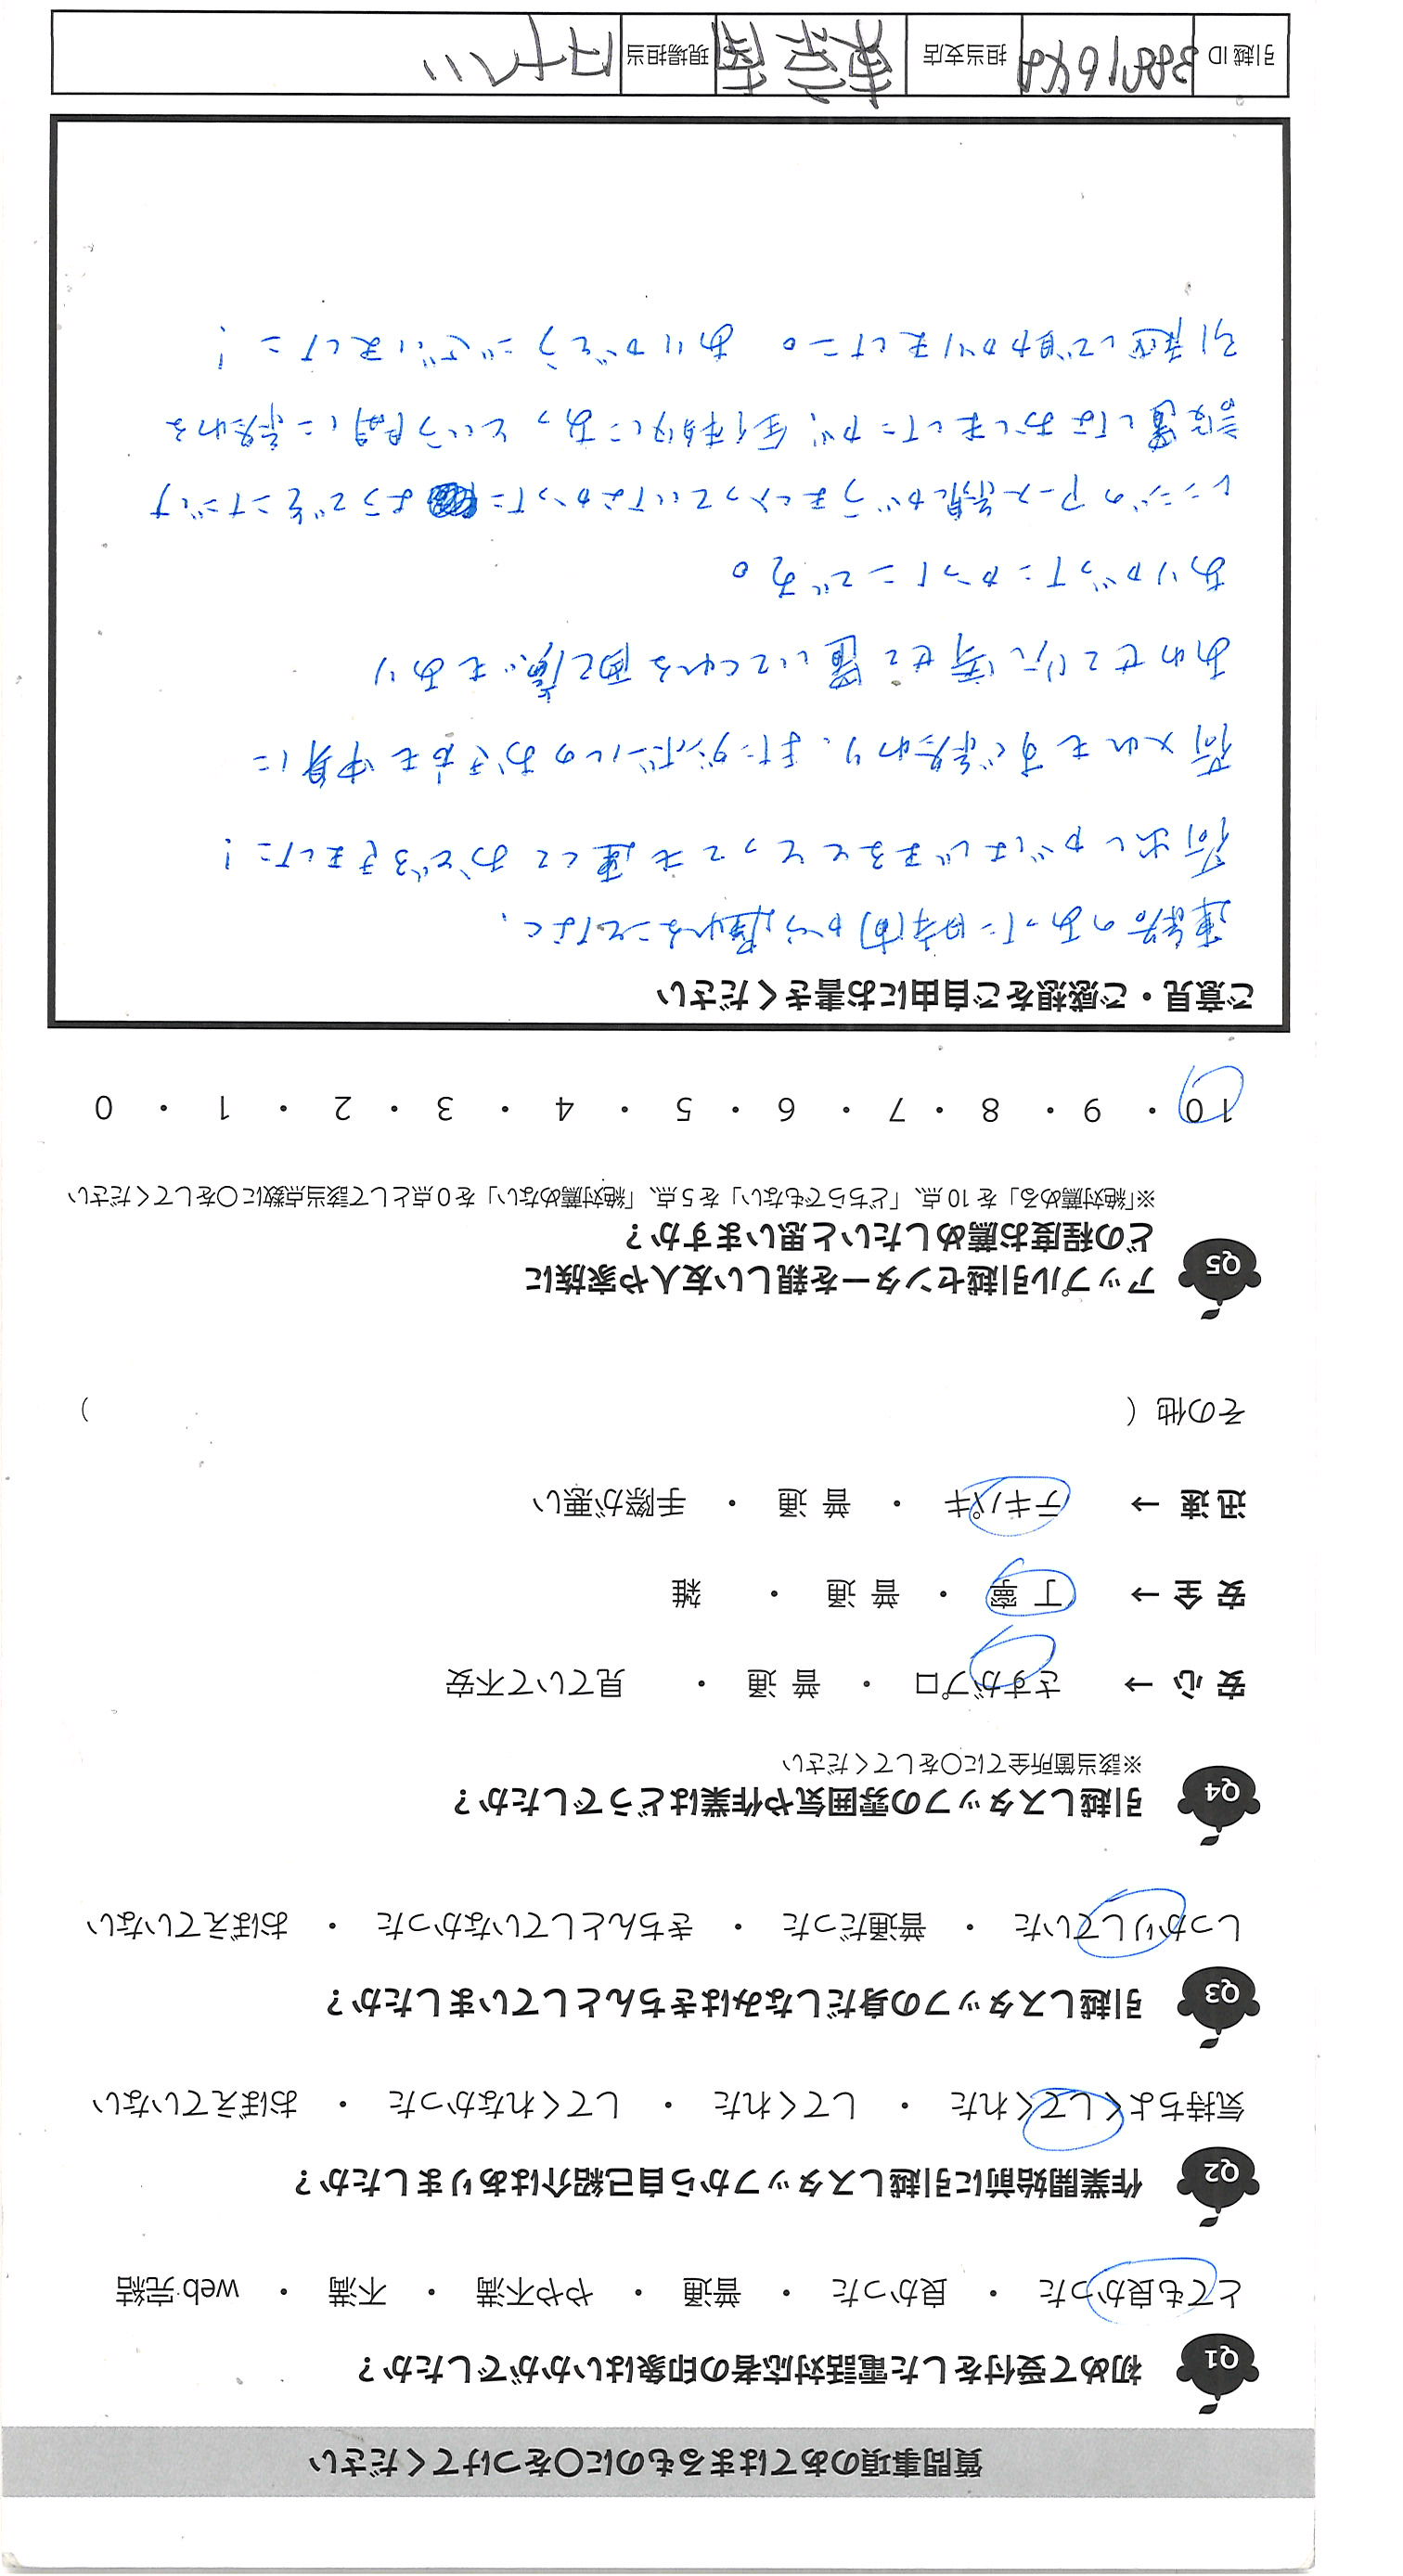 質問事項のあてはまるものに〇をつけてください
Q1 初めて受付をした電話対応者の印象はいかがでしたか？
とても良かった ・ 良かった ・ 普通 ・ やや不満 ・ 不満 ・ web完結
Q2 作業開始前に引越しスタッフから自己紹介はありましたか？
気持ちよくしてくれた ・ してくれた ・ してくれなかった ・ おぼえていない
Q3 引越しスタッフの身だしなみはきちんとしていましたか？
しっかりしていた ・ 普通だった ・ きちんとしていなかった ・ おぼえていない
Q4 引越しスタッフの雰囲気や作業はどうでしたか？
※該当箇所全てに〇をしてください
安心 → さすがプロ ・ 普通 ・ 見ていて不安
安全 → 丁寧 ・ 普通 ・ 雑
迅速 → テキパキ ・ 普通 ・ 手際が悪い
その他（ ）
Q5 アップル引越センターを親しい友人や家族に
どの程度お薦めしたいと思いますか？
※「絶対薦める」を10点、「どちらでもない」を5点、「絶対薦めない」を0点として該当点数に〇をしてください
10 ・ 9 ・ 8 ・ 7 ・ 6 ・ 5 ・ 4 ・ 3 ・ 2 ・ 1 ・ 0
ご意見・ご感想をご自由にお書きください
連絡のあった時間から遅れることなく、
荷出しがはじまるととっても速くておどろきました！
荷入れもすぐ終わり、またダンボールのおき方も中身に
あわせて片寄せて置いてくれる心遣いもあり
ありがたかったです。
レンジのアース線がうまく入っていなかったようでそこだけ
設置しなおしましたが、全体的にあっという間に終わる
引越しで助かりました。ありがとうございました！
引越ID 担当支店 現場担当